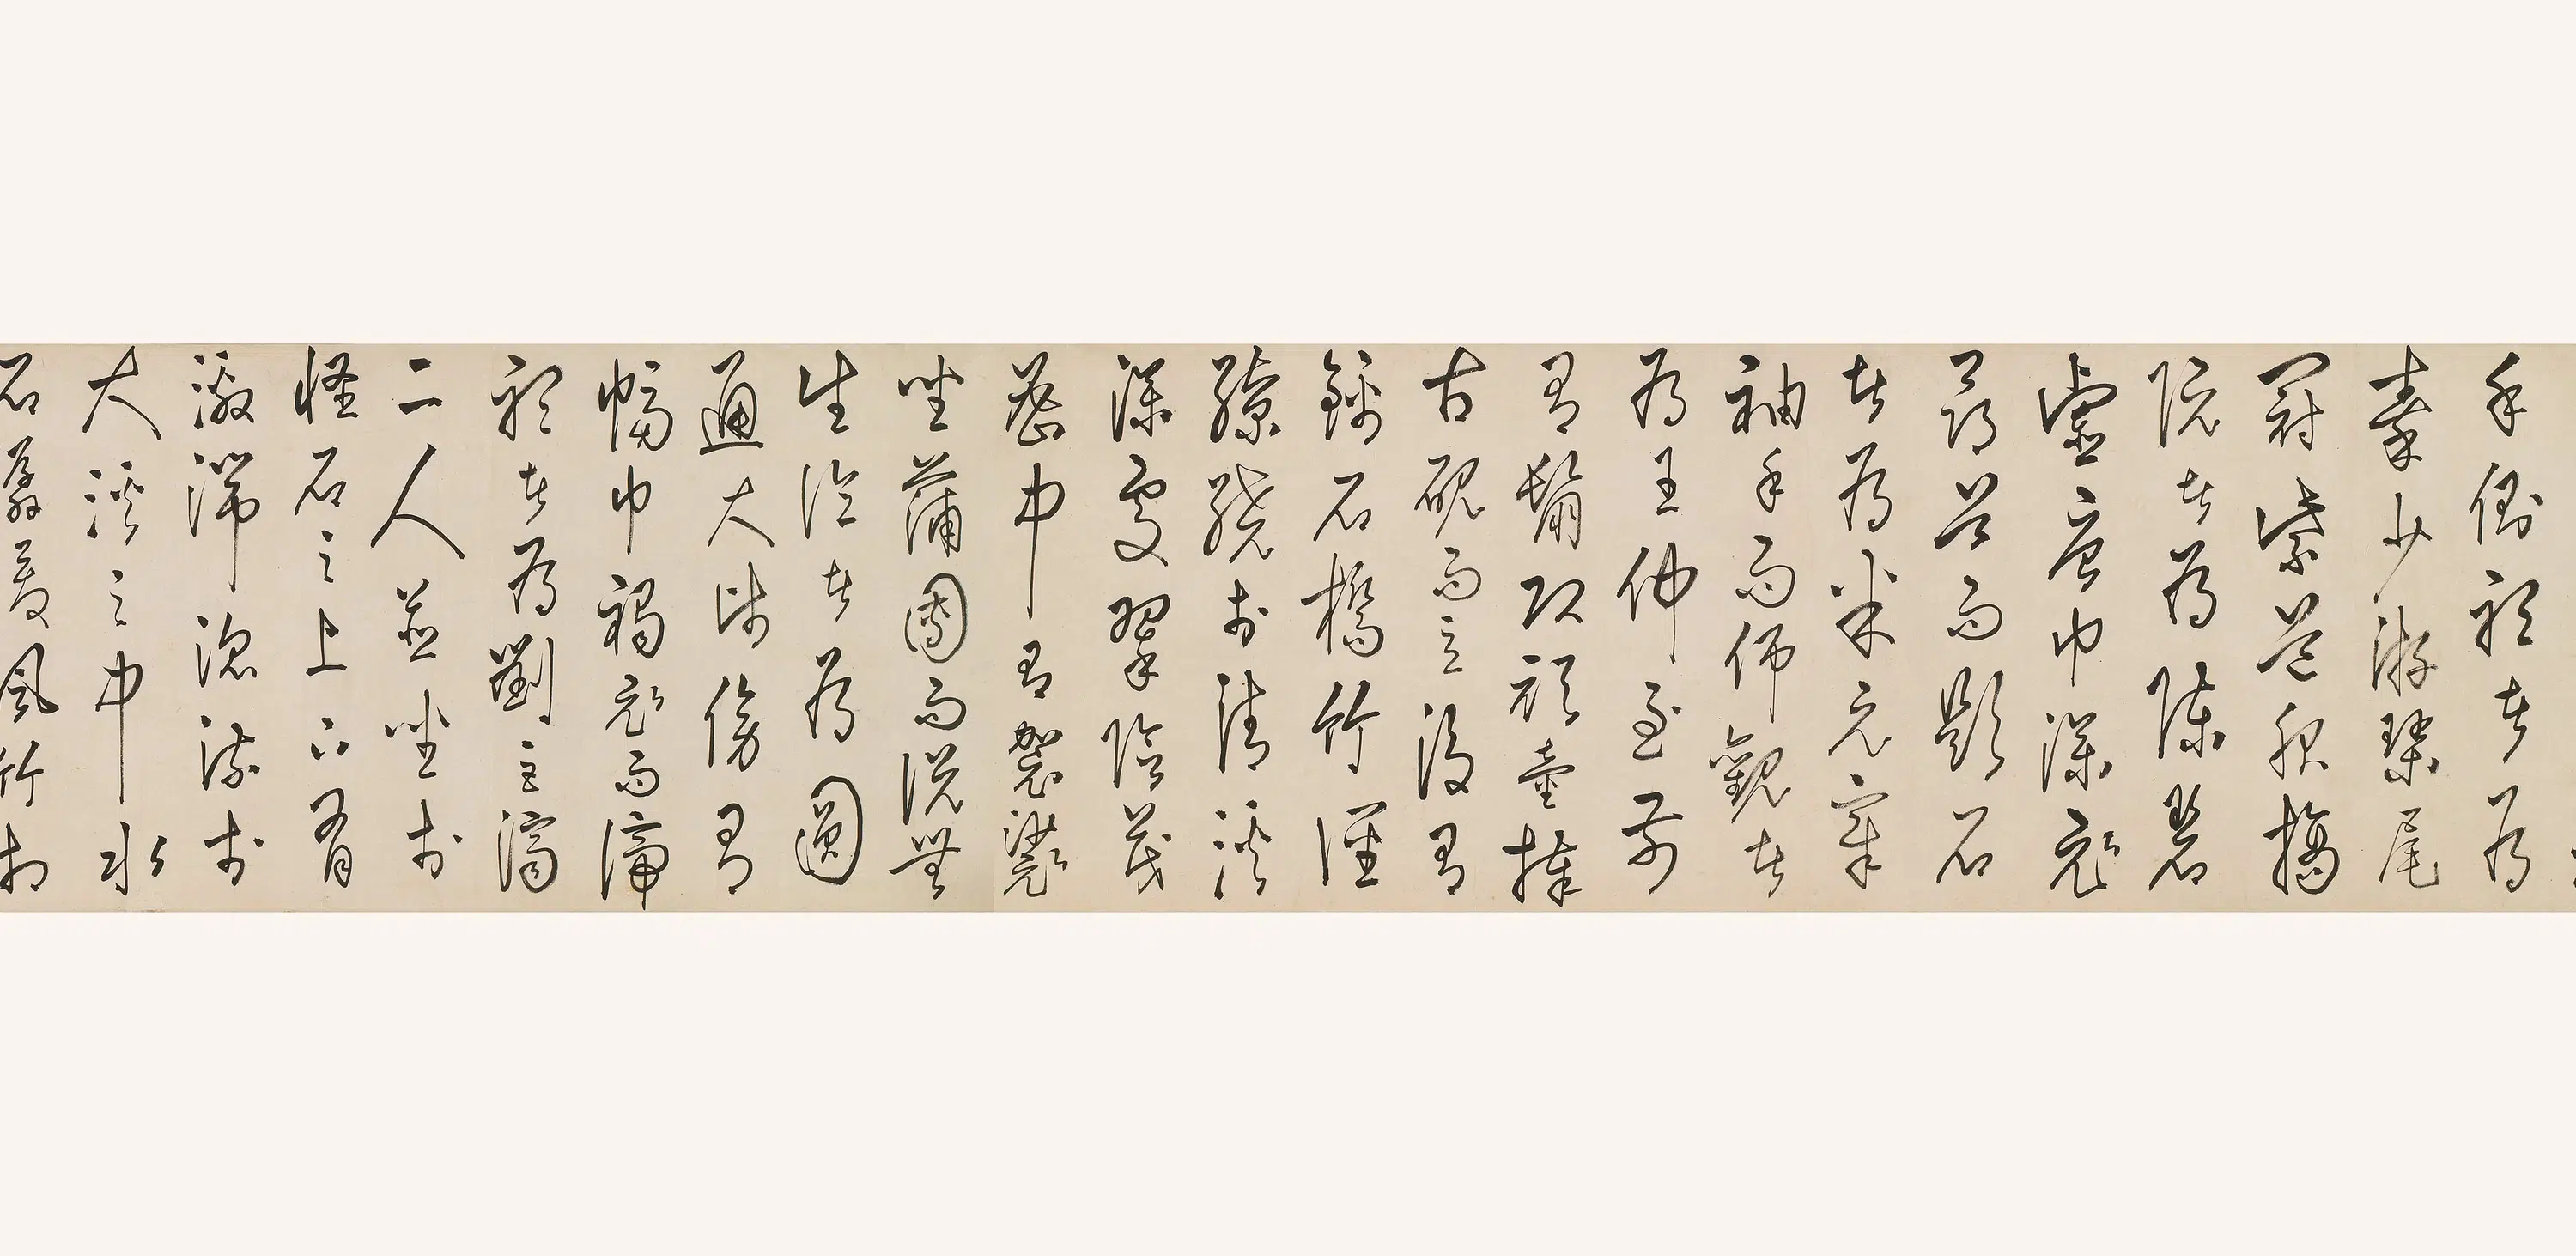 手側聽者為
秦少游琴尾
冠紫道服摘
阮者為陳碧
虛唐巾深衣
昂首而題石
者為米元章
袖手而仰觀者
為王仲至前
有鬅頭頑童捧
古硯而立後有
錦石橋竹徑
繚繞於清溪
深處翠陰茂
密中有袈裟
坐蒲團而說無
生論者為圓
通大師傍有
幅巾褐衣而諦
聽者為劉巨濟
二人並坐於
怪石之上下有
激湍潨流於
大溪之中水
石潺湲風竹相